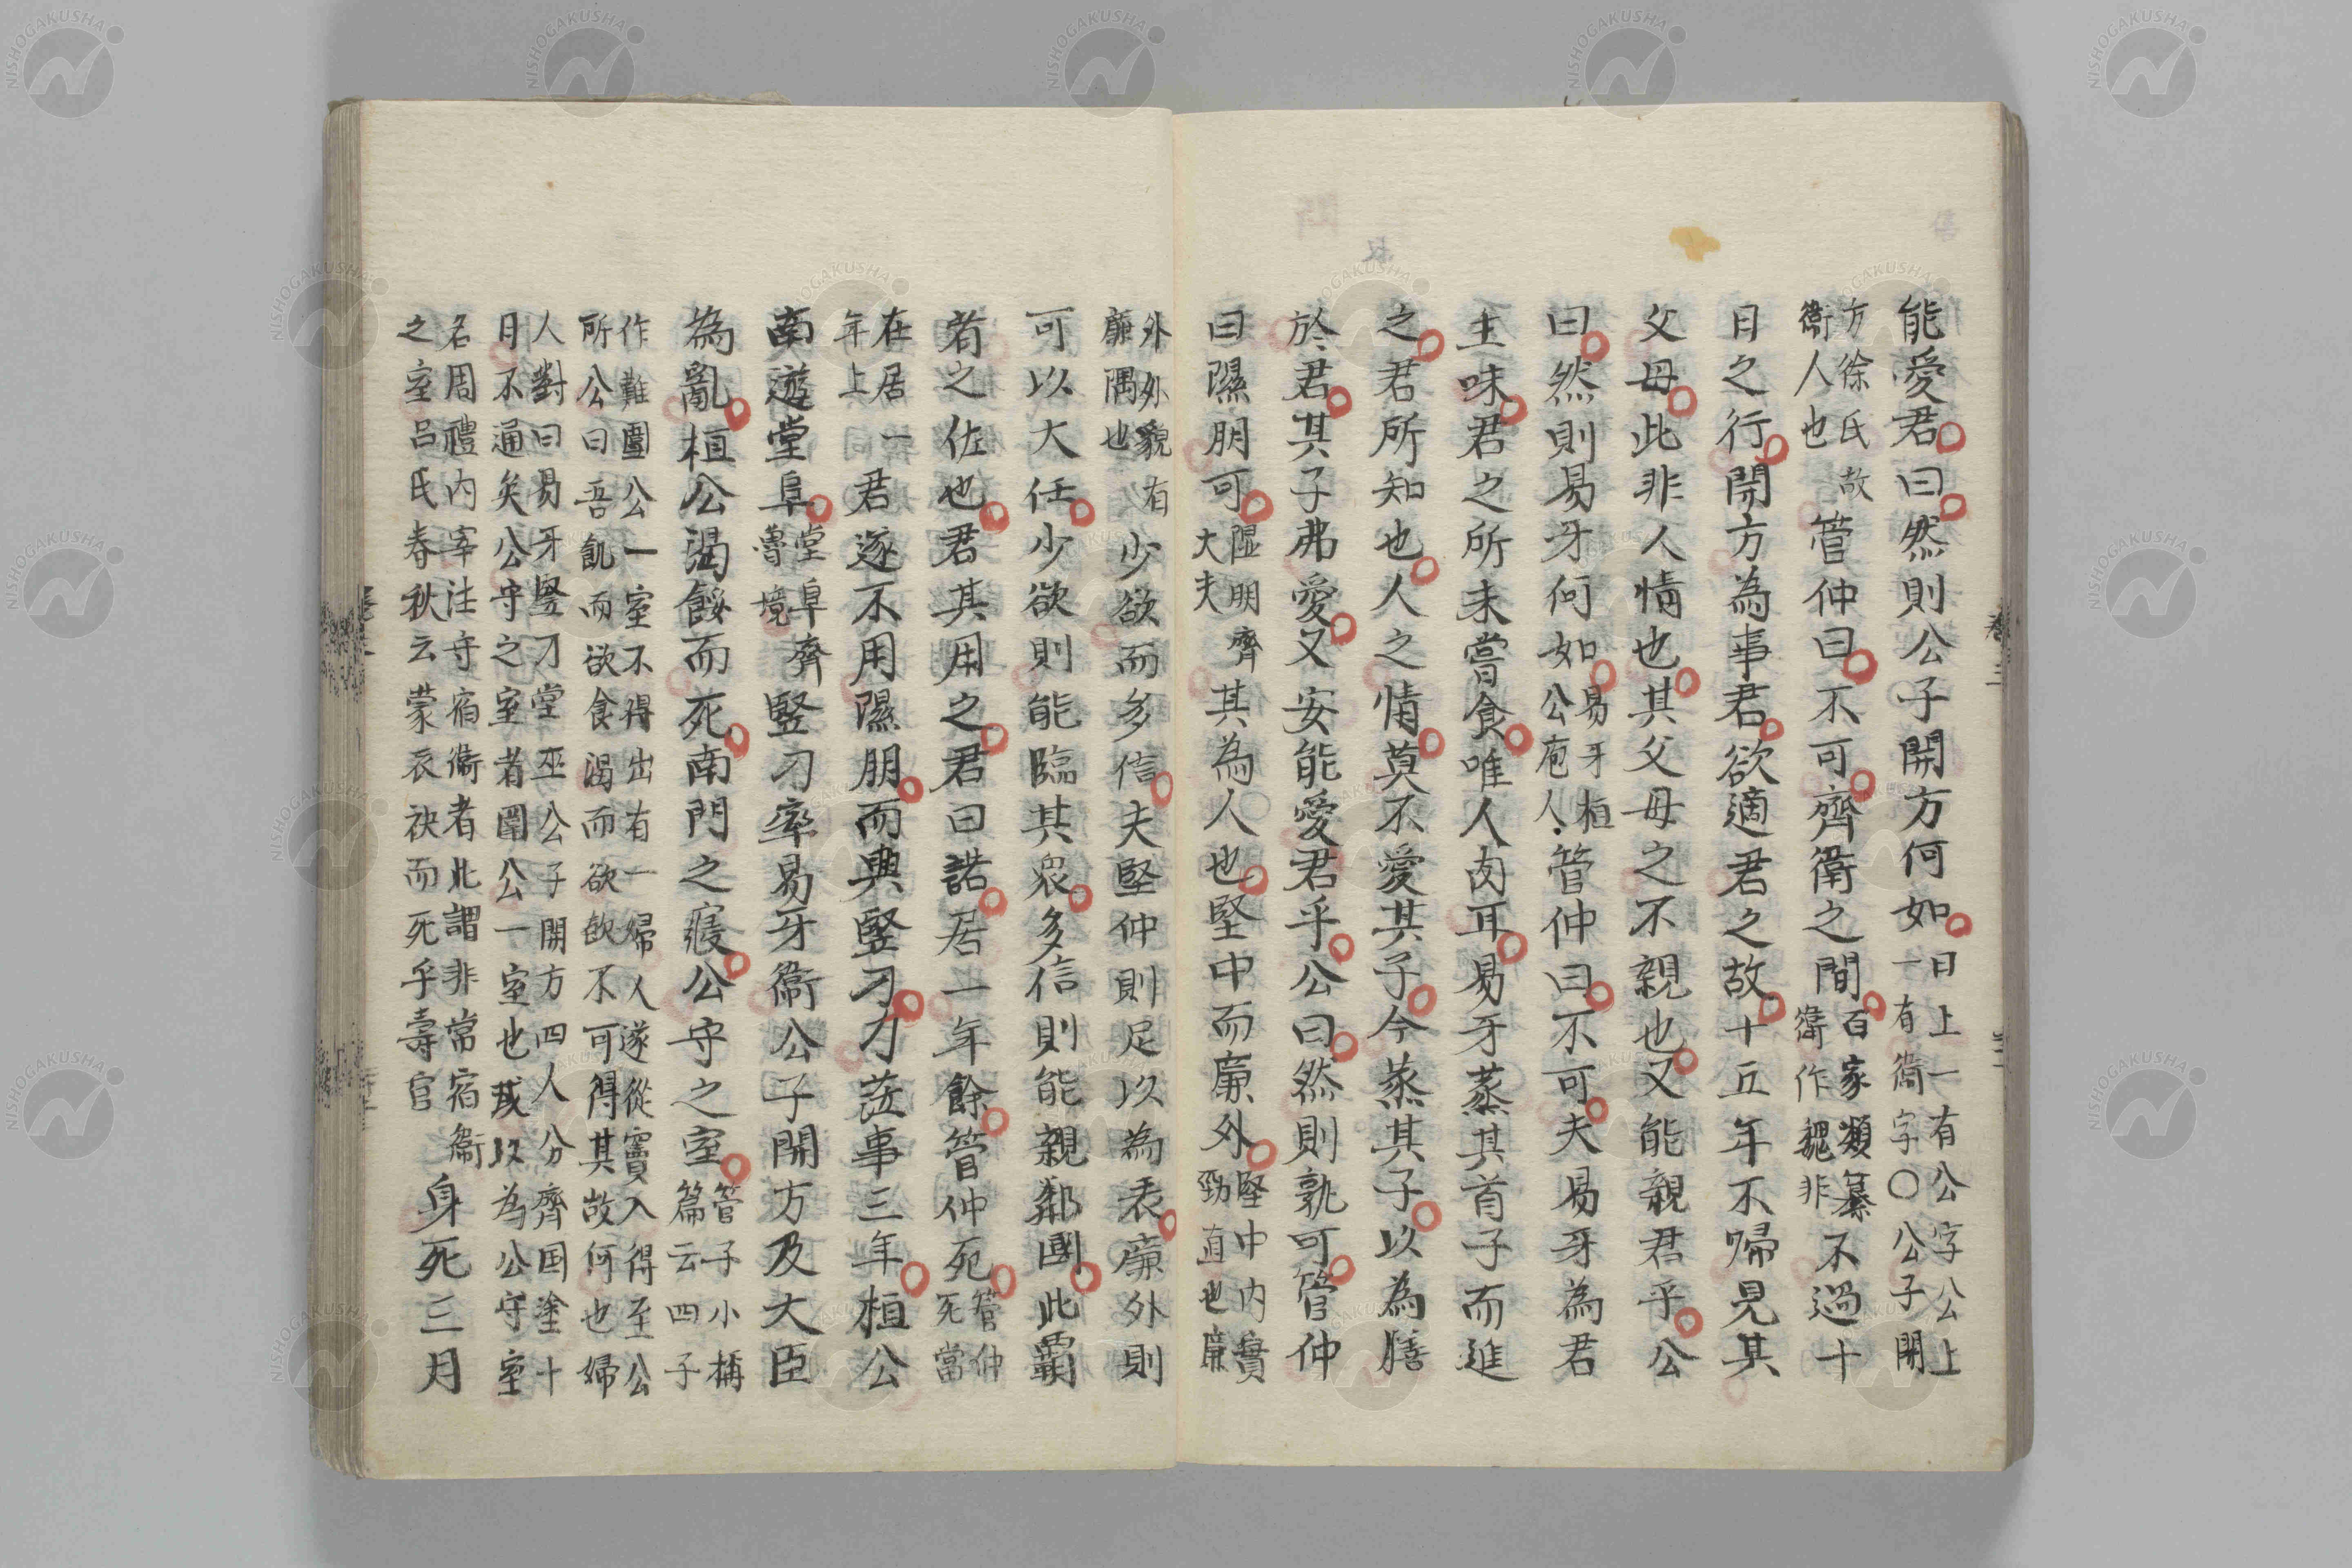 能愛君曰然則公子開方何如曰上一有公字公上一有衞字〇公子開
方徐氏故衞人也管仲曰不可齊衞之間百家類纂衞作魏非不過十
日之行開方為事君欲適君之故十五年不歸見其
父母此非人情也其父母之不親也又能親君乎公
曰然則易牙何如易牙桓公庖人管仲曰不可夫易牙為君
主味君之所未嘗食唯人肉耳易牙蒸其首子而進
之君所知也人之情莫不愛其子今蒸其子以為膳
於君其子弗愛又安能愛君乎公曰然則孰可管仲
曰隰朋可隰朋齊大夫其為人也堅中而廉外堅中內實勁直也廉
外外貌有廉隅也少欲而多信夫堅仲則足以為表廉外則
可以大任少欲則能臨其衆多信則能親鄰國此霸
者之佐也君其用之君曰諾居一年餘管仲死管仲死當
在居一年上君遂不用隰朋而與竪刁刁莅事三年桓公
南遊堂阜堂阜齊魯境竪刁率易牙衞公子開方及大臣
為亂桓公渴餒而死南門之寢公守之室管子小稱篇云四子
作難圍公一室不得出有一婦人遂從竇入得至公所公曰吾飢而欲食渴而欲飲不可得其故何也婦
人對曰易牙竪刁堂巫公子開方四人分齊国塗十日不通矣公守之室者圍公一室也或以為公守室
名周禮內宰注守宿衞者此謂非常宿衞之室呂氏春秋云蒙衣袂而死乎壽宮身死三月
卷三
NISHOGAKUSHA